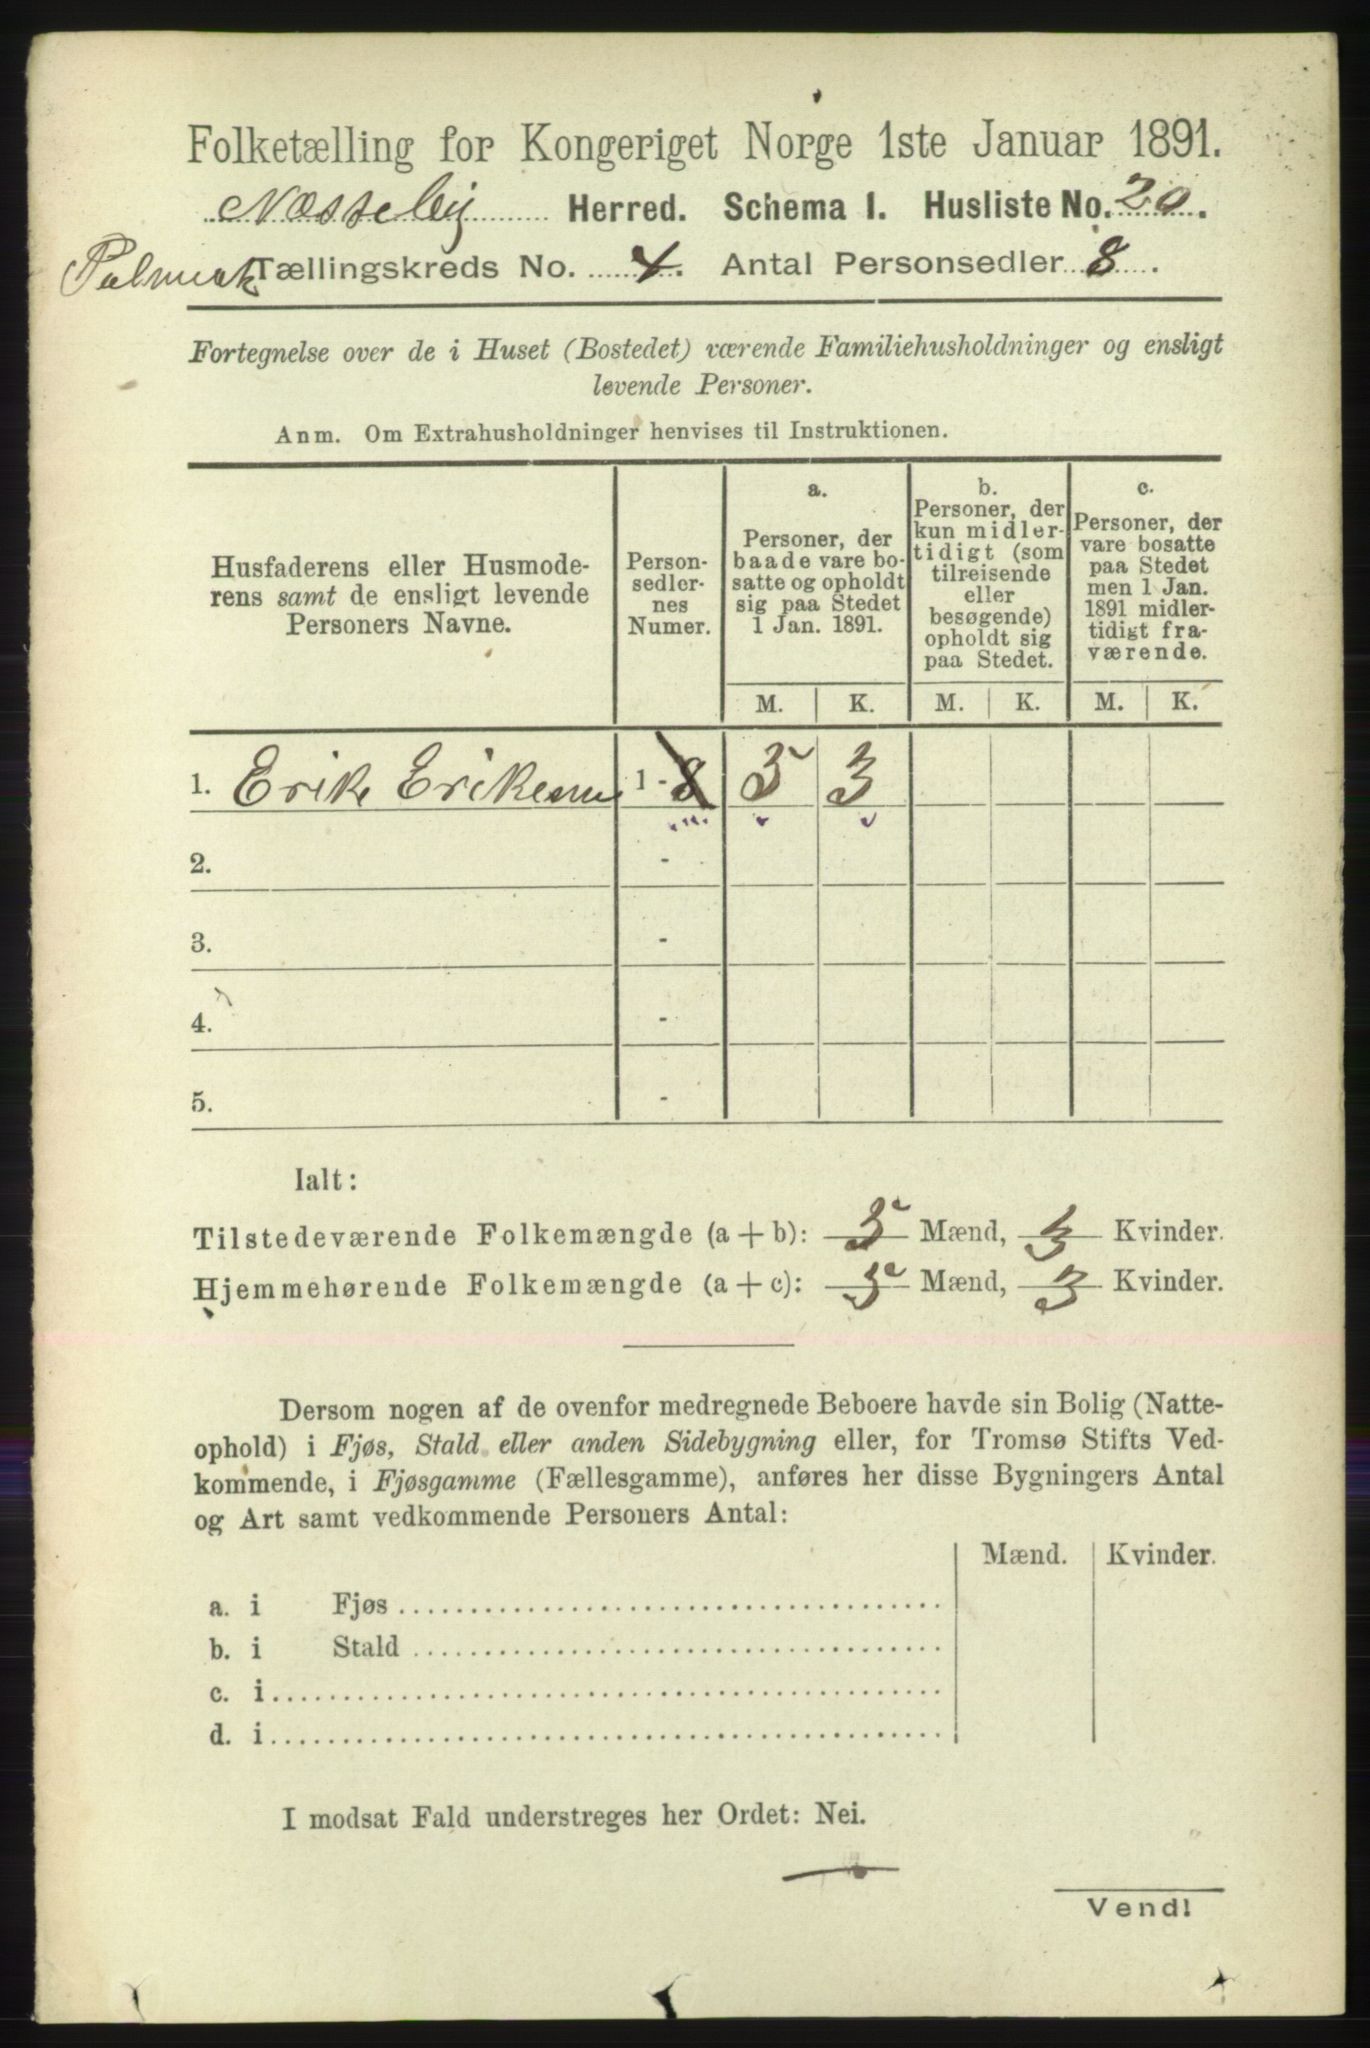 Folketælling for Kongeriget Norge 1ste Januar 1891.
Næsseby Herred. Schema I. Husliste No. 20.
Polmak Tællingskreds No. 4. Antal Personsedler 8.
Fortegnelse over de i Huset (Bostedet) værende Familiehusholdninger og ensligt
levende Personer.
Anm. Om Extrahusholdninger henvises til Instruktionen.
Husfaderens eller Husmode-
rens samt de ensligt levende
Personers Navne.
Person-
sedler-
nes
Numer.
a.
Personer, der
baade vare bo-
satte og opholdt
sig paa Stedet
1 Jan. 1891.
b.
Personer, der
kun midler-
tidigt (som
tilreisende
eller
besøgende)
opholdt sig
paa Stedet.
c.
Personer, der
vare bosatte
paa Stedet
men 1 Jan.
1891 midler-
tidigt fra-
værende.
M. K. M. K. M. K.
1. Erik Eriksen 1 - 8 5 3
2. -
3. -
4. -
5. -
Ialt:
Tilstedeværende Folkemængde (a + b): 5 Mænd, 3 Kvinder.
Hjemmehørende Folkemængde (a + c): 5 Mænd, 3 Kvinder.
Dersom nogen af de ovenfor medregnede Beboere havde sin Bolig (Natte-
ophold) i Fjøs, Stald eller anden Sidebygning eller, for Tromsø Stifts Ved-
kommende, i Fjøsgamme (Fællesgamme), anføres her disse Bygningers Antal
og Art samt vedkommende Personers Antal:
Mænd. Kvinder.
a. i Fjøs
b. i Stald
c. i
d. i
I modsat Fald understreges her Ordet: Nei.
Vend!